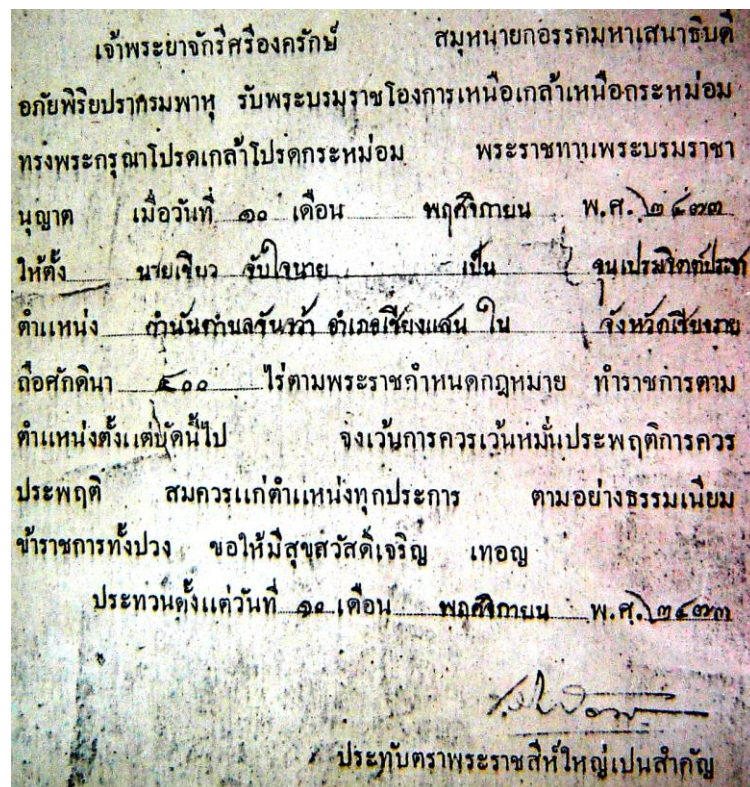 เจ้าพระยาจักรีศรีองครักษ์ สมุหนายกอรรคมหาเสนาธิบดี
อภัยพิริยปรากรมพาหุ รับพระบรมราชโองการเหนือเกล้าเหนือกระหม่อม
ทรงพระกรุณาโปรดเกล้าโปรดกระหม่อม พระราชทานพระบรมราชา
นุญาต เมื่อวันที่ ๑๐ เดือน พฤศจิกายน พ.ศ. ๒๔๗๓
ให้ตั้ง นายเขียว จับใจนาย เป็น ขุนเปรมจิตต์ประชา
ตำแหน่ง กำนันตำบลจันจว้า อำเภอเชียงแสน ใน จังหวัดเชียงราย
ถือศักดินา ๔๐๐ ไร่ตามพระราชกำหนดกฎหมาย ทำราชการตาม
ตำแหน่งตั้งแต่บัดนี้ไป จงเว้นการควรเว้นหมั่นประพฤติการควร
ประพฤติ สมควรแก่ตำแหน่งทุกประการ ตามอย่างธรรมเนียม
ข้าราชการทั้งปวง ขอให้มีสุขสวัสดิ์เจริญ เทอญ
ประทวนตั้งแต่วันที่ ๑๐ เดือน พฤศจิกายน พ.ศ. ๒๔๗๓
ประทับตราพระราชสีห์ใหญ่เปนสำคัญ